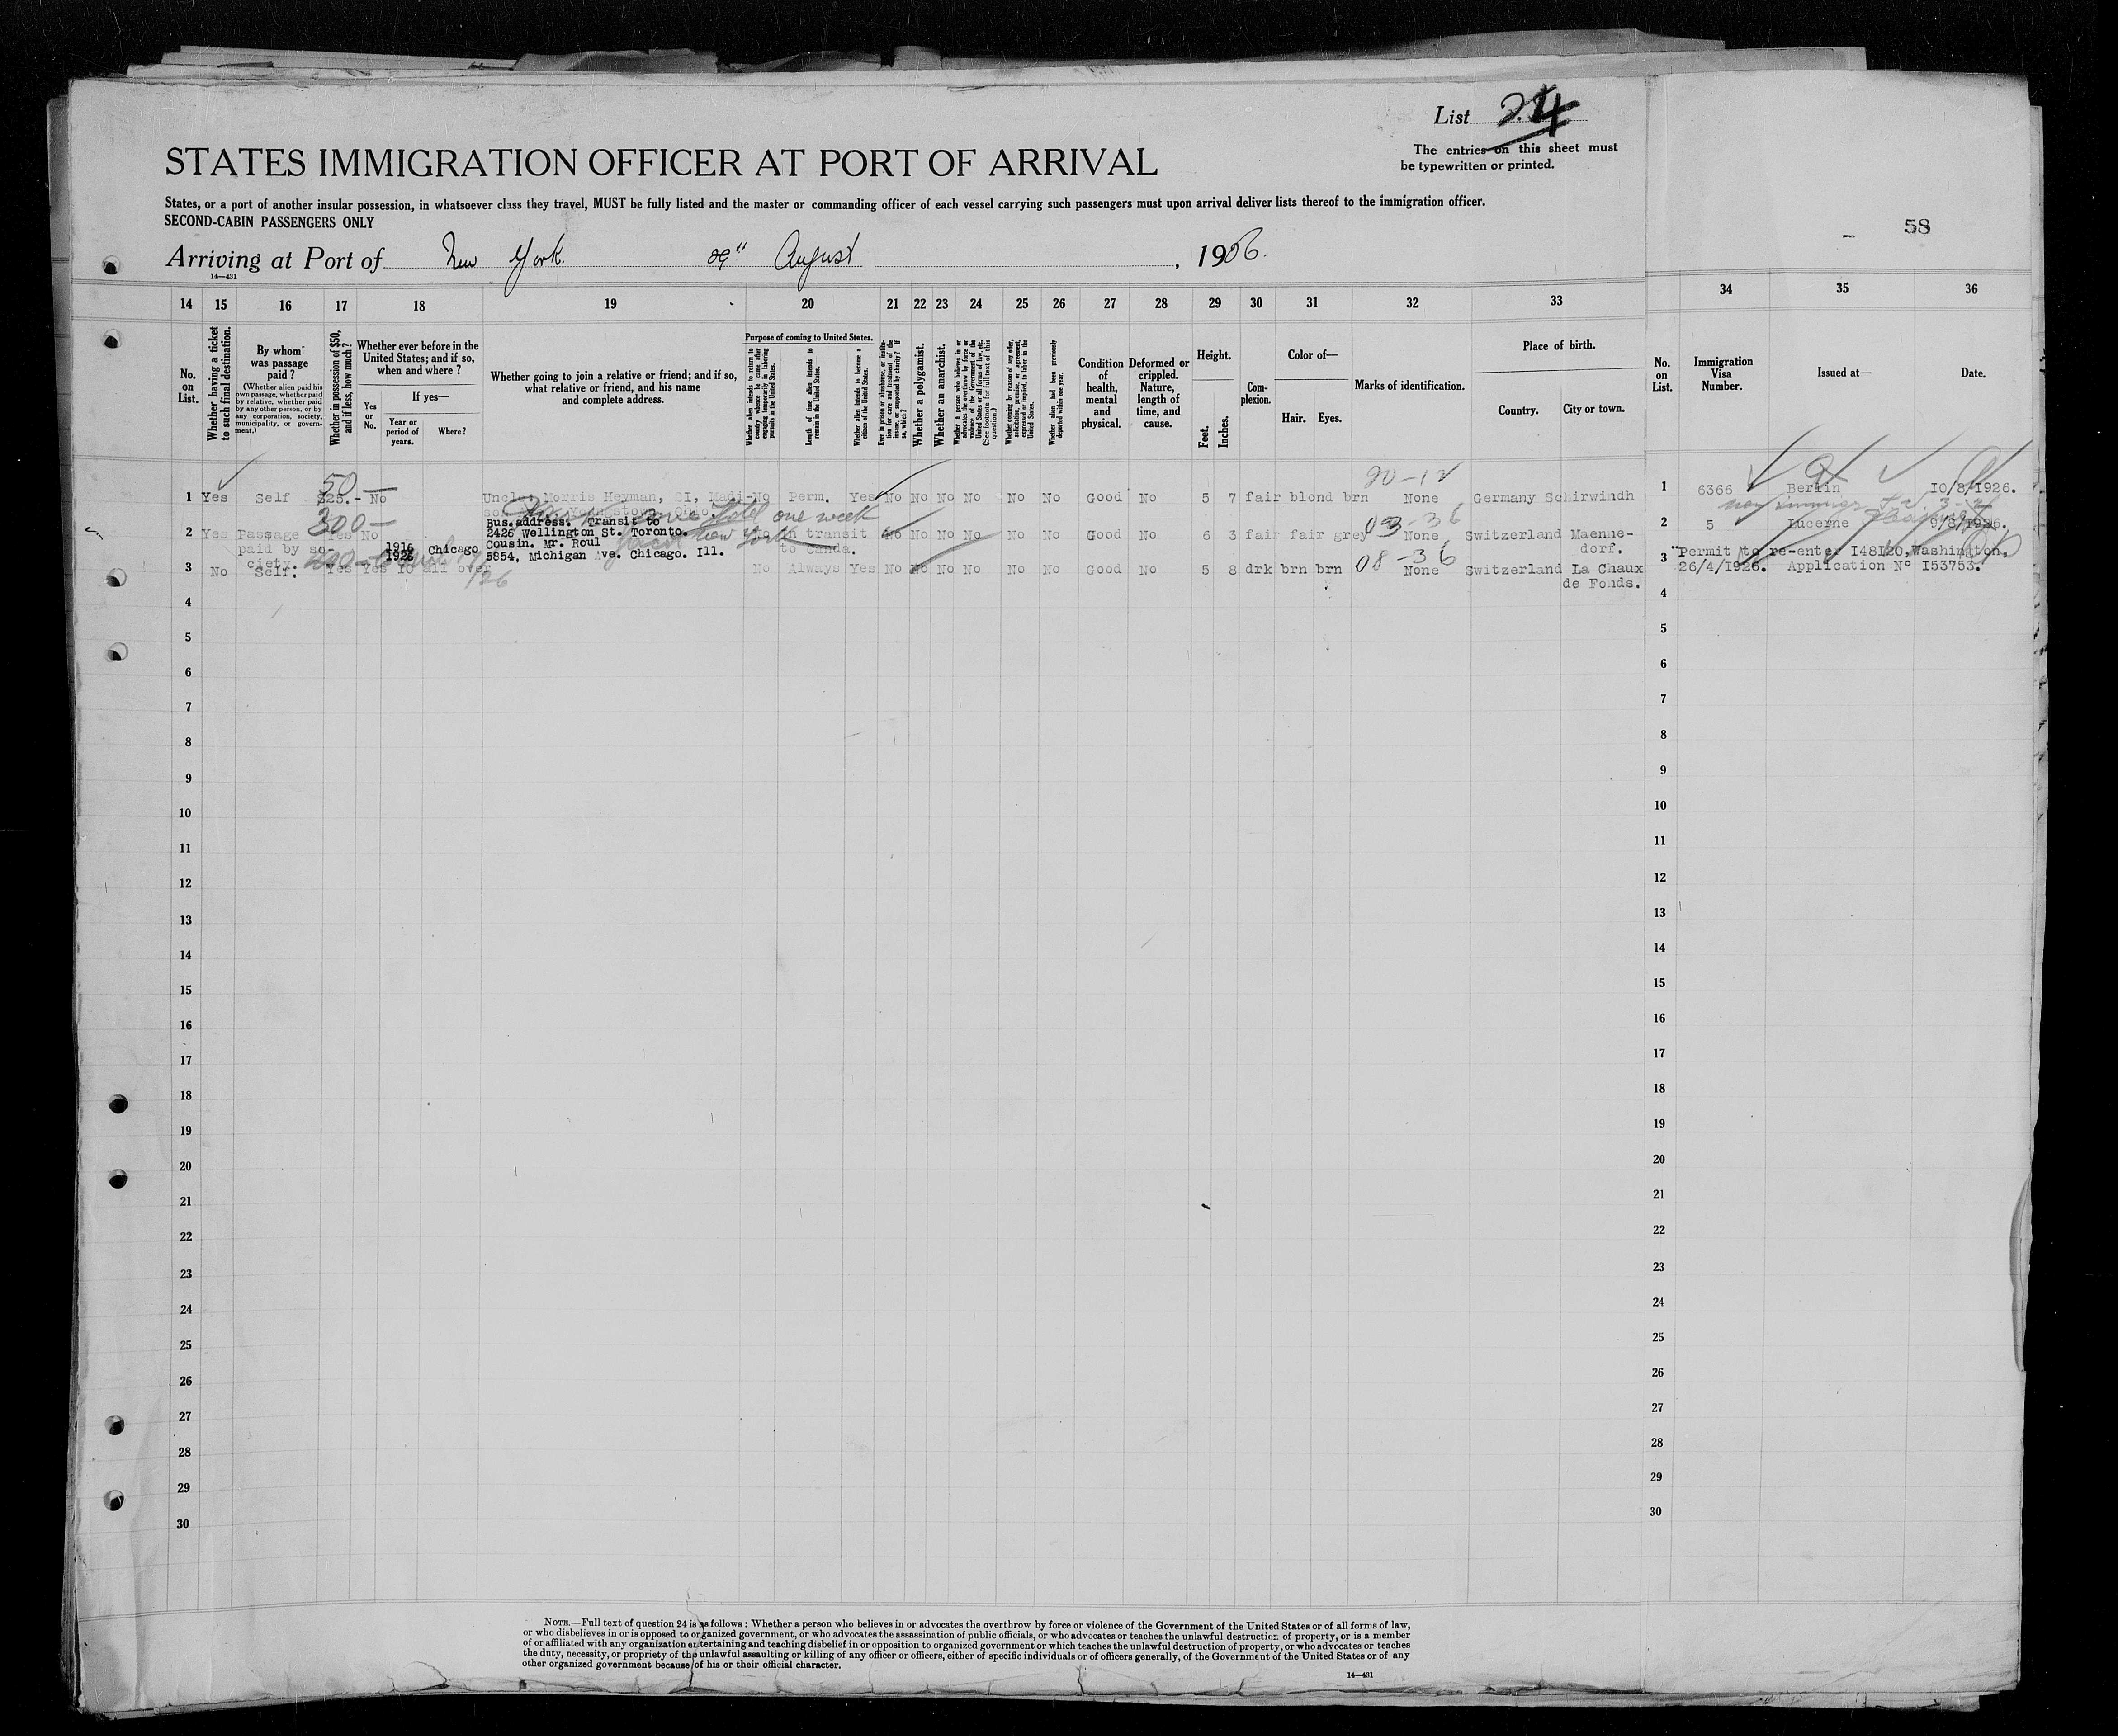 List 24
The entries on this sheet must
be typewritten or printed.
STATES IMMIGRATION OFFICER AT PORT OF ARRIVAL
States, or a port of another insular possession, in whatsoever class they travel, MUST be fully listed and the master or commanding officer of each vessel carrying such passengers must upon arrival deliver lists thereof to the immigration officer.
SECOND-CABIN PASSENGERS ONLY
58
Arriving at Port of New York. August, 1926.
14—431
14 15 16 17 18 19 20 21 22 23 24 25 26 27 28 29 30 31 32 33 34 35 36
No. on List.
Whether having a ticket to such final destination.
By whom was passage paid?
(Whether alien paid his own passage, whether paid by relative, whether paid by any other person, or by any corporation, society, municipality, or government.)
Whether in possession of $50, and if less, how much?
Whether ever before in the United States; and if so, when and where?
Yes or No.
If yes—
Year or period of years.
Where?
Whether going to join a relative or friend; and if so, what relative or friend, and his name and complete address.
Purpose of coming to United States.
Whether alien intends to return to country whence he came after engaging temporarily in laboring pursuits in the United States.
Length of time alien intends to remain in the United States.
Whether alien intends to become a citizen of the United States.
Ever in prison or almshouse, or institution for care and treatment of the insane, or supported by charity? If so, which?
Whether a polygamist.
Whether an anarchist.
Whether a person who believes in or advocates the overthrow by force or violence of the Government of the United States or all forms of law, etc. (See footnote for full text of this question.)
Whether coming by reason of any offer, solicitation, promise, or agreement, expressed or implied, to labor in the United States.
Whether alien had been previously deported within one year.
Condition of health, mental and physical.
Deformed or crippled. Nature, length of time, and cause.
Height.
Feet. Inches.
Complexion.
Color of—
Hair. Eyes.
Marks of identification.
Place of birth.
Country. City or town.
No. on List.
Immigration Visa Number.
Issued at—
Date.
50—
1 Yes Self $25.- No Uncle: Morris Heyman, CI, Madi- No Perm. Yes No No No No No No Good No 5 7 fair blond brn None Germany Schirwindh 1 6366 Berlin 10/8/1926.
son Youngstown, Ohio.
Hotel one week
300—
Bus.address. Transit to
2 Yes Passage Yes No 2426 Wellington St. Toronto. No In transit No No No No No No Good No 6 3 fair fair grey None Switzerland Maenne- 2 5 Lucerne 9/8/1926.
paid by so- to Canda. dorf.
ciety. New York
03-36
1916 Chicago Cousin. Mr. Roul
1926 5854, Michigan Ave. Chicago. Ill.
3 No Self. Yes Yes 10 all over No Always Yes No No No No No No Good No 5 8 drk brn brn None Switzerland La Chaux
de Fonds.
08-36
3 Permit to re-enter I48I20,Washington,
26/4/1926. Application Nº I53753.
4 4
5 5
6 6
7 7
8 8
9 9
10 10
11 11
12 12
13 13
14 14
15 15
16 16
17 17
18 18
19 19
20 20
21 21
22 22
23 23
24 24
25 25
26 26
27 27
28 28
29 29
30 30
NOTE.—Full text of question 24 is as follows: Whether a person who believes in or advocates the overthrow by force or violence of the Government of the United States or of all forms of law,
or who disbelieves in or is opposed to organized government, or who advocates the assassination of public officials, or who advocates or teaches the unlawful destruction of property, or is a member
of or affiliated with any organization entertaining and teaching disbelief in or opposition to organized government or which teaches the unlawful destruction of property, or who advocates or teaches
the duty, necessity, or propriety of the unlawful assaulting or killing of any officer or officers, either of specific individuals or of officers generally, of the Government of the United States or of any
other organized government because of his or their official character.
14—431